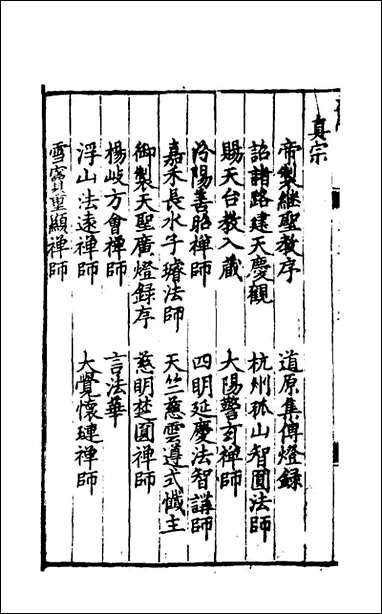 真宗
帝製繼聖教序　道原集傳燈錄
詔諸路建天慶觀　杭州孤山智圓法師
賜天台教入藏　大陽警玄禪師
汾陽善昭禪師　四明延慶法智講師
嘉禾長水子璿法師　天竺慈雲遵式懺主
御製天聖廣燈錄序　慈明楚圓禪師
楊岐方會禪師　言法華
浮山法遠禪師　大覺懷璉禪師
雪竇重顯禪師